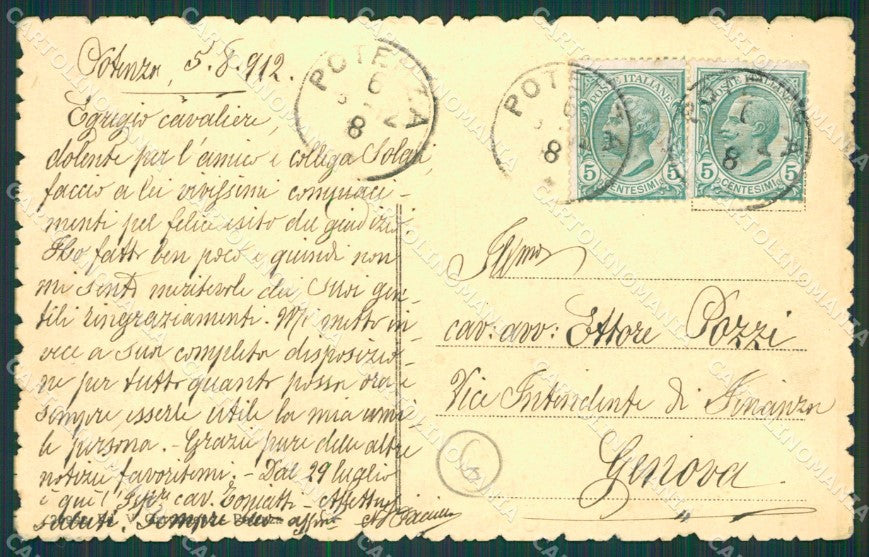 Potenza, 5.8.912.
Egregio cavaliere,
dolente per l'amico e collega Solari,
faccio a lei vivissimi compiaci-
menti pel felice esito del giudizio.
Ho fatto ben poco e quindi non
mi sento meritevole dei Suoi gen-
tili ringraziamenti. Mi metto in-
vece a Sua completa disposizio-
ne per tutto quanto possa ora e
sempre esserle utile la mia umi-
le persona. - Grazie pure delle altre
notizie favoritemi. - Dal 29 luglio
è qui l' cav. - Affettuosi
saluti. Sempre suo aff.mo
POTENZA
8
POTENZA
8
POTENZA
8
POSTE ITALIANE
5 5
CENTESIMI
POSTE ITALIANE
5 5
CENTESIMI
cav: avv: Ettore Pozzi
Vice Intendente di Finanza
Genova
6
CARTOLINOMANIA